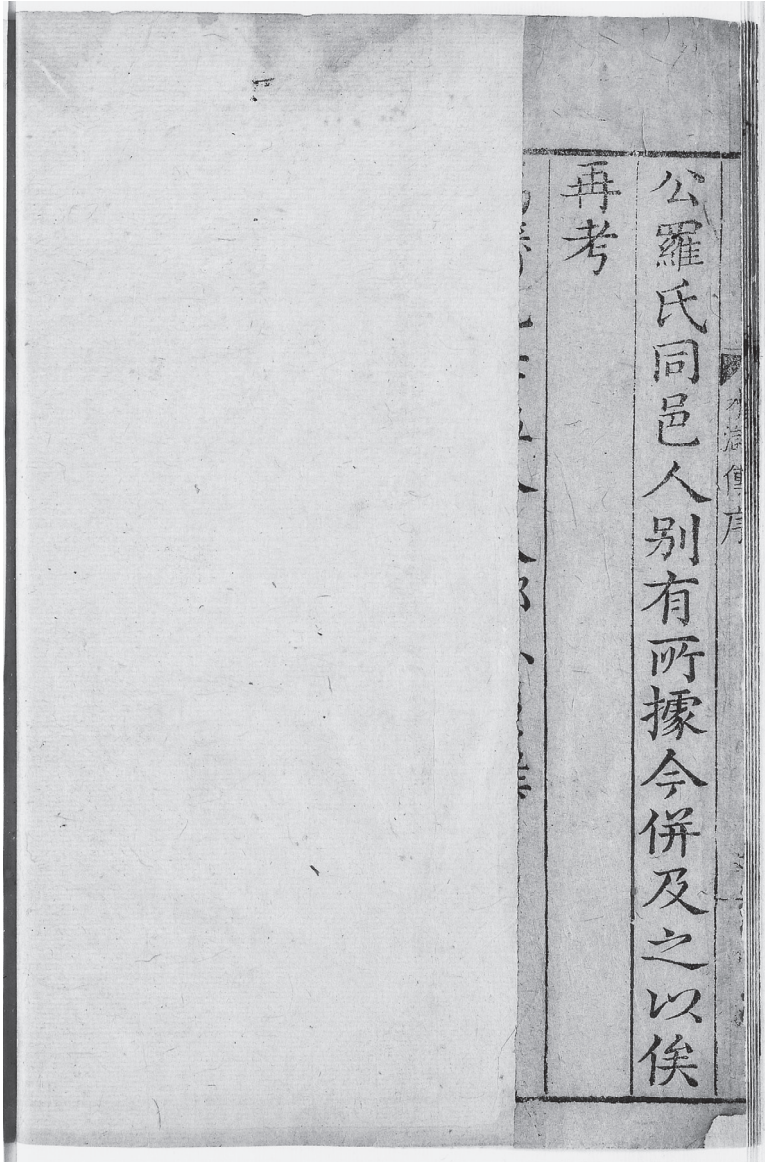 水滸傳序
公羅氏同邑人別有所據今併及之以俟
再考